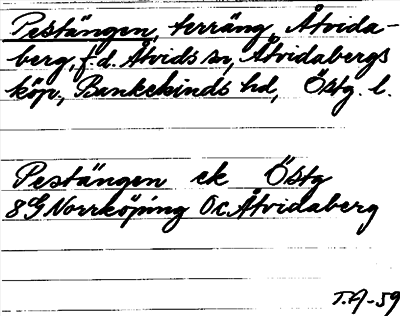 Pestängen, terräng Åtvida-
berg, f.d. Åtvids sn, Åtvidabergs
köp., Bankekinds hd, Östg. l.
Pestängen ek Östg
8G Norrköping 0c Åtvidaberg
T.A-59